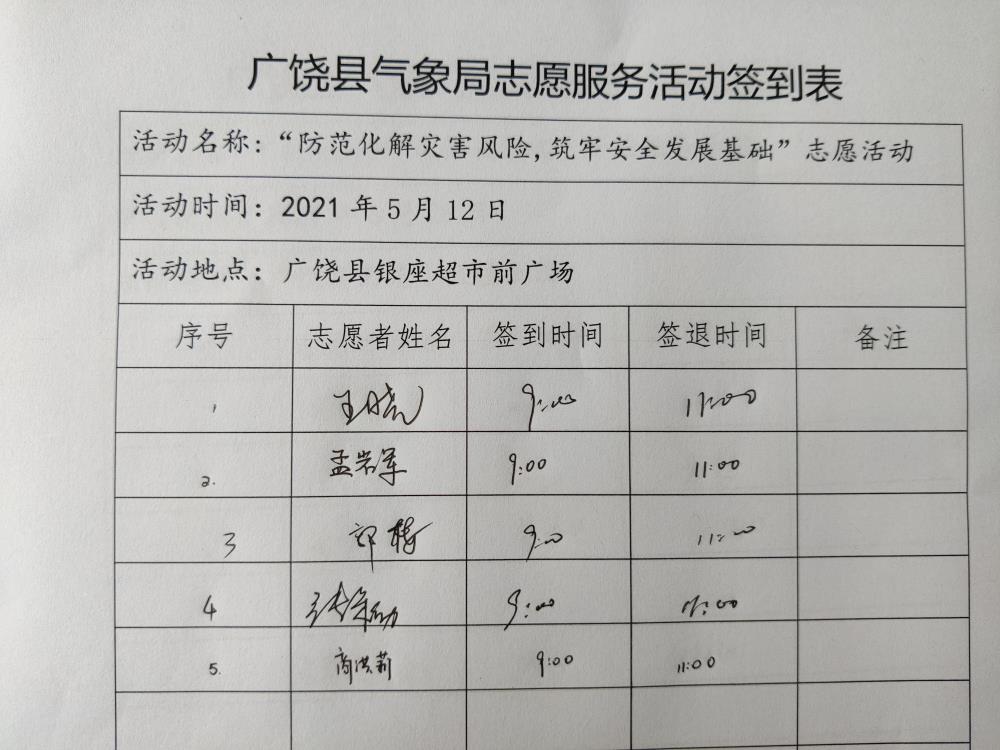 广饶县气象局志愿服务活动签到表
活动名称:“防范化解灾害风险,筑牢安全发展基础”志愿活动
活动时间: 2021 年 5 月 12 日
活动地点: 广饶县银座超市前广场
序号 志愿者姓名 签到时间 签退时间 备注
1 王晓 9:00 11:00
2. 孟岩军 9:00 11:00
3 郭梅 9:00 11:00
4 9:00 11:00
5. 商洪莉 9:00 11:00